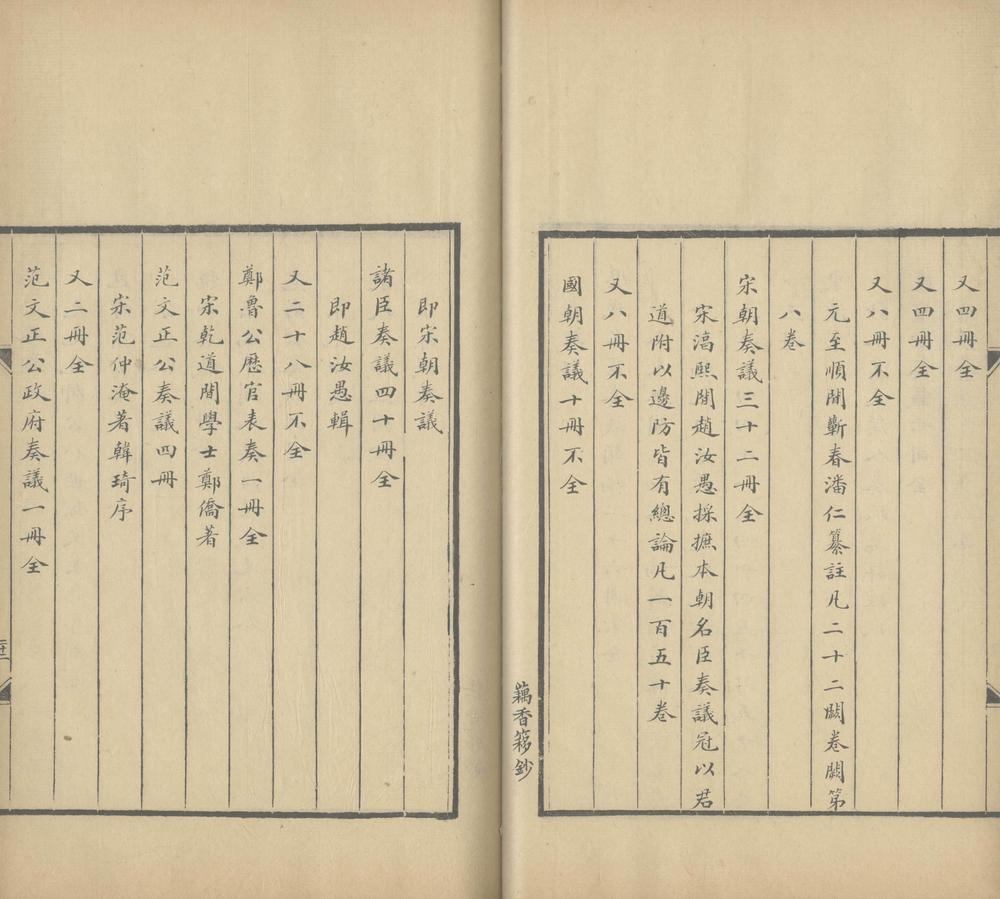 又四冊全
又四冊全
又八冊不全
元至順間蘄春潘仁纂註凡二十二闕卷闕第
八卷
宋朝奏議三十二冊全
宋淳熙間趙汝愚採摭本朝名臣奏議冠以君
道附以邊防皆有總論凡一百五十卷
又八冊不全
國朝奏議十冊不全
藕香簃鈔
即宋朝奏議
諸臣奏議四十冊全
即趙汝愚輯
又二十八冊不全
鄭魯公歷官表奏一冊全
宋乾道間學士鄭僑著
范文正公奏議四冊
宋范仲淹著韓琦序
又二冊全
范文正公政府奏議一冊全